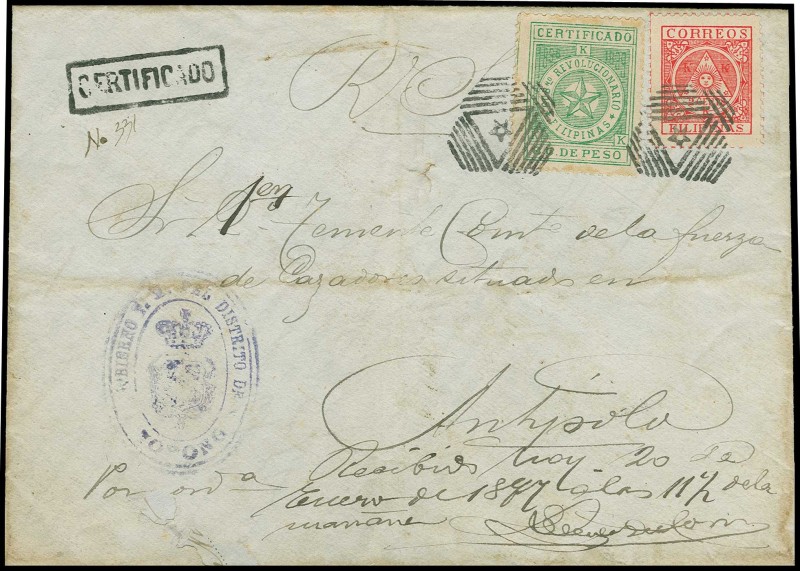 CERTIFICADO
No 331
R. S.
CERTIFICADO
K
1898 1898
REVOLUCIONARIO
FILIPINAS
K
DE PESO
CORREOS
K K
KILIPINAS
Sr 1er Teniente Comte de la fuerza
de Cazadores situados en
GOBIERNO P. M. DEL DISTRITO DE
MORONG
Antipolo
Por orda Recibido hoy 20 de
Enero de 1897 a las 11½ de la
mañana